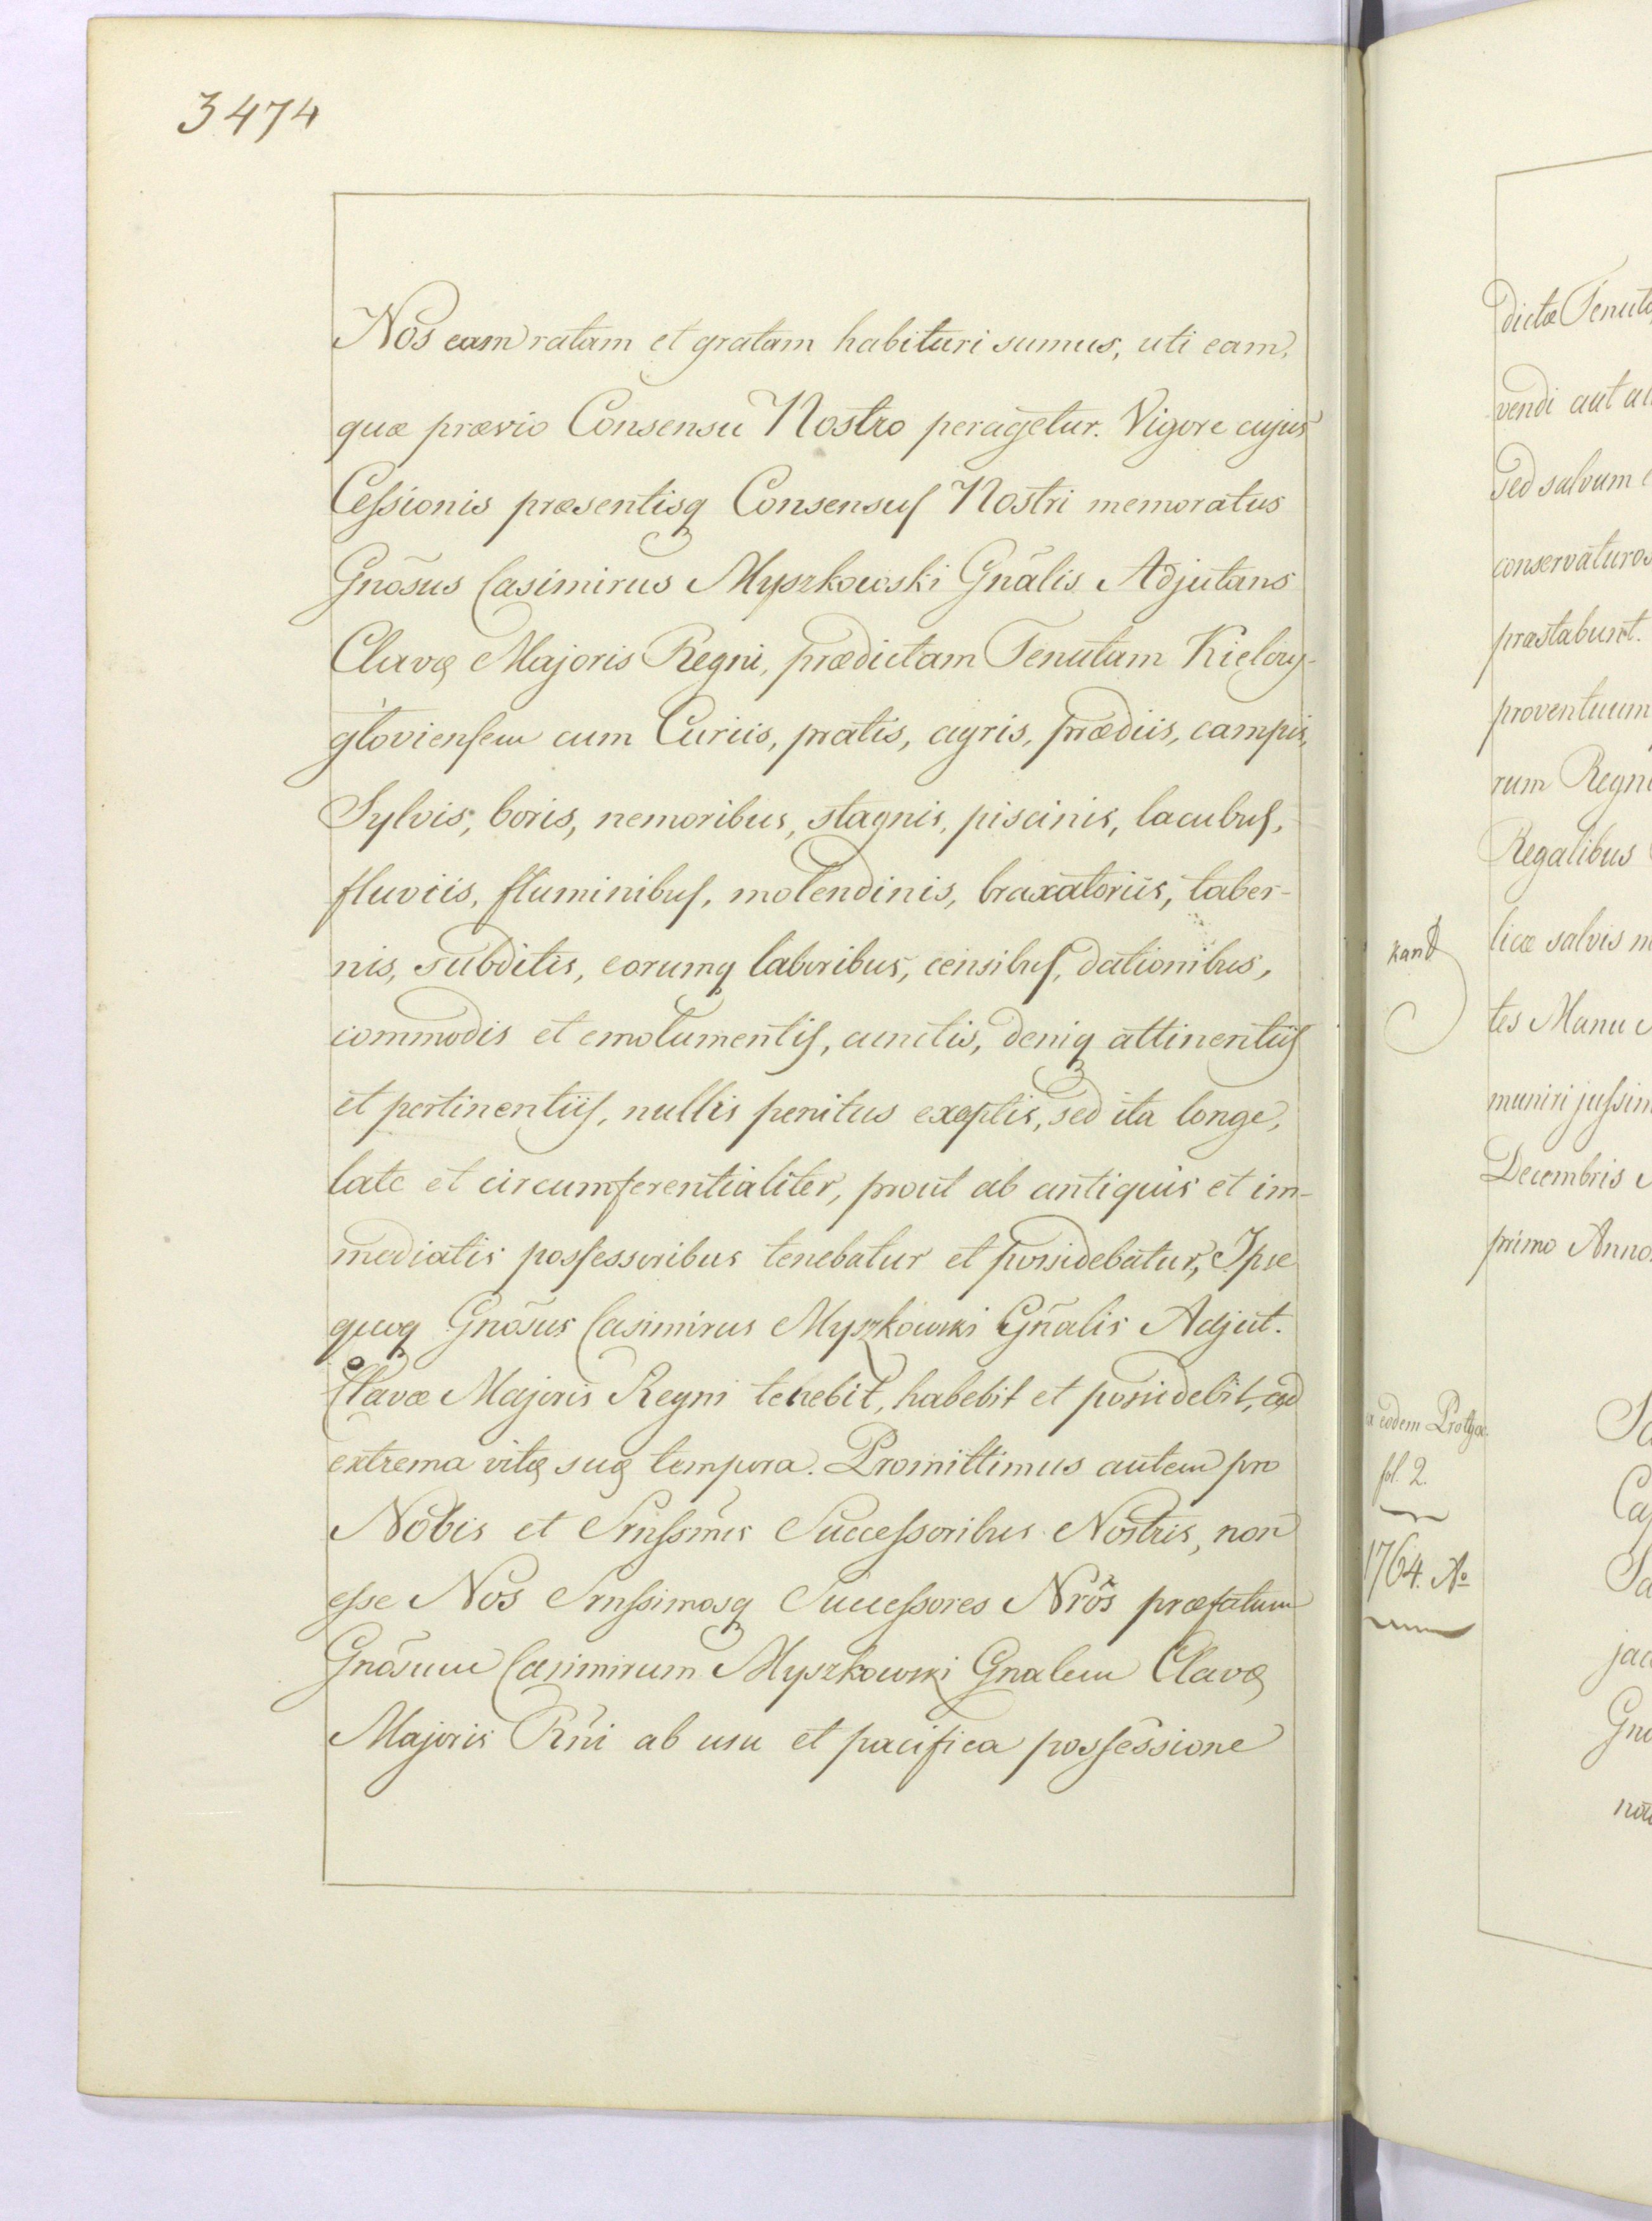 3474
Nos eam ratam et gratam habituri sumus, uti eam,
quæ prævio Consensu Nostro peragetur. Vigore cujus
Cessionis præsentisq Consensus Nostri memoratus
Gnõsus Casimirus Myszkowski Gnãlis Adjutans
Clavę Majoris Regni, prædictam Tenutam Kiełczy-
głoviensem cum Curiis, pratis, agris, prædiis, campis,
Sylvis, boris, nemoribus, stagnis, piscinis, lacubus,
fluviis, fluminibus, molendinis, braxatoriis, taber-
nis, subditis, eorumq laboribus, censibus, dationibus,
commodis et emolumentis, cunctis, deniq attinentiis
et pertinentiis, nullis penitus exeptis, sed ita longe,
late et circumferentialiter, prout ab antiquis et im-
mediatis possessoribus tenebatur et possidebatur, Ipse
quoq Gnõsus Casimirus Myszkowski Gñalis Adjut.
Clavæ Majoris Regni tenebit, habebit et possidebit, ad
extrema vitę suę tempora. Promittimus autem pro
Nobis et Srnssimis Successoribus Nostris, non
esse Nos Srnssimosq Successores Nrõs præfatum
Gnõsum Casimirum Myszkowski Gnalem Clavę
Majoris Rñi ab usu et pacifica possessione
dictæ Tenut
vendi aut al
Sed salvum
conservaturos
præstabunt.
proventuum
rum Regni
Regalibus
licæ salvis
tes Manu
muniri jussim
Decembris
primo Anno
eodem
fol. 2.
1764. Aº